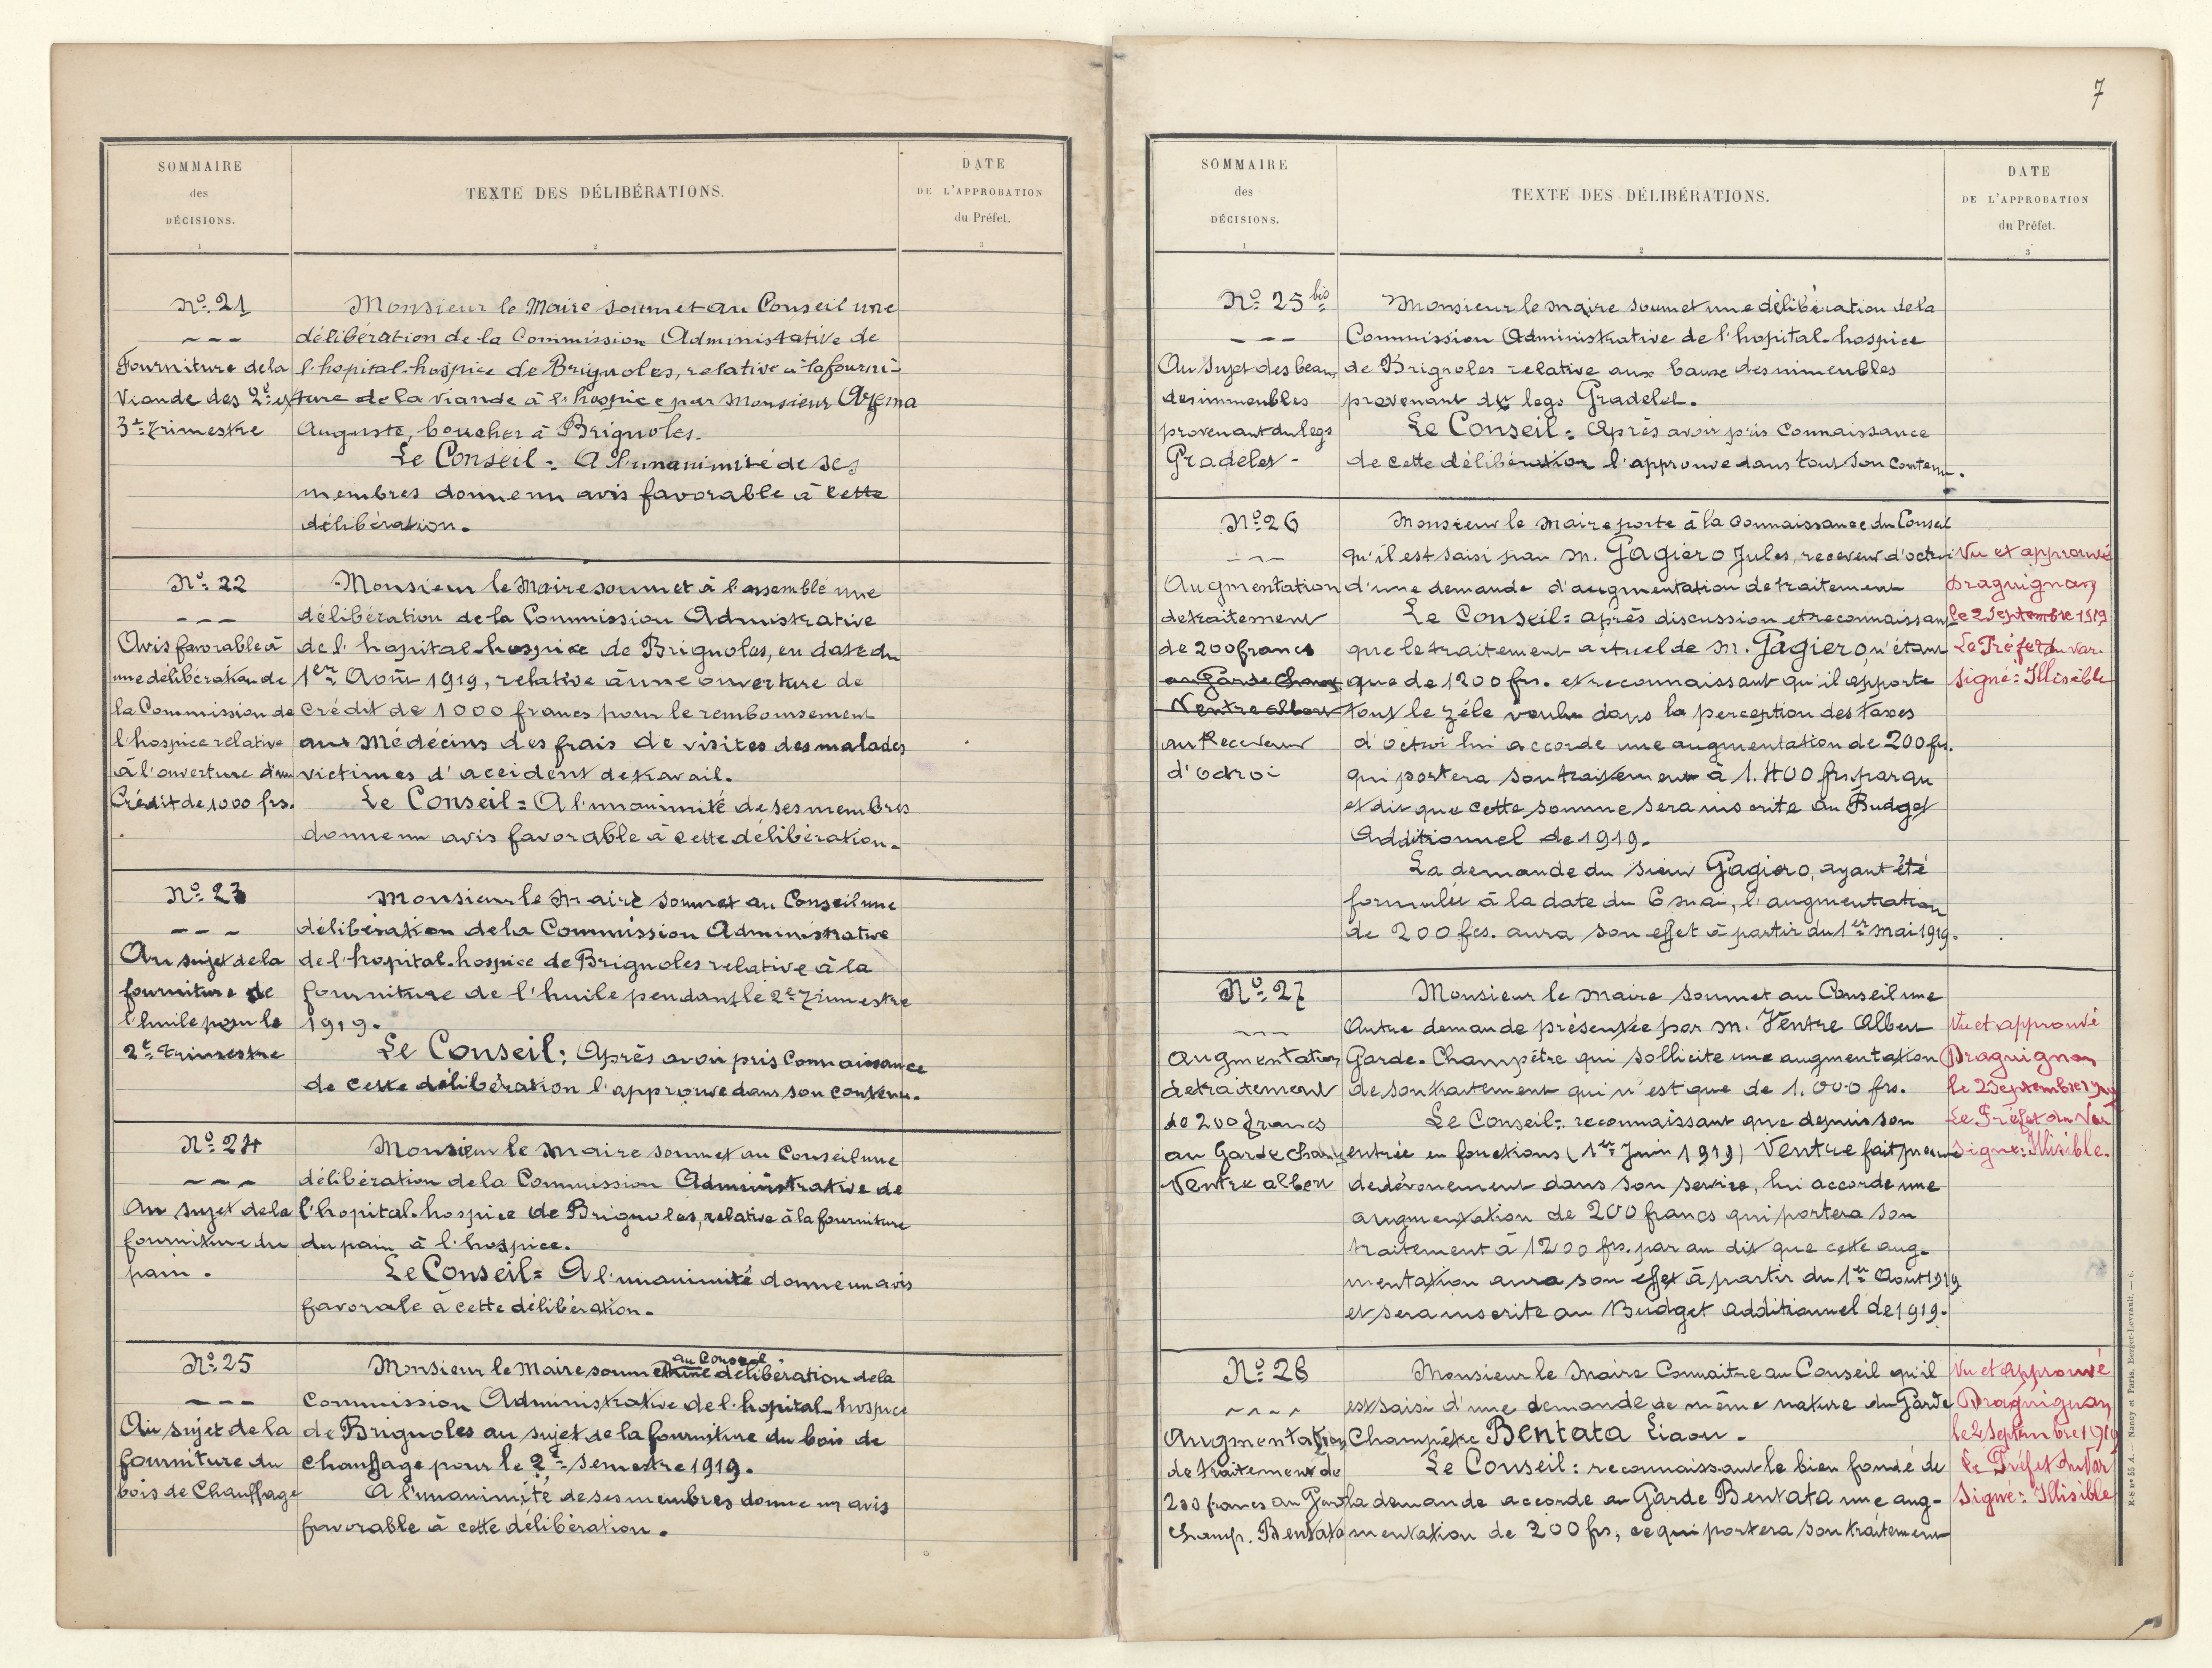 SOMMAIRE
des
DÉCISIONS.
1
TEXTE DES DÉLIBÉRATIONS.
2
DATE
DE L'APPROBATION
du Préfet.
3
No. 21
Fourniture de la
Viande des 2e et
3e trimestre
Monsieur le Maire soumet au Conseil une
délibération de la Commission Administative de
l'hopital-hospice de Brignoles, relative à la fourni-
ture de la viande à l'hospice par Monsieur
Auguste, boucher à Brignoles.
Le Conseil = A l'unanimité de ses
membres donne un avis favorable à cette
délibération.
No. 22
Avis favorable à
une délibération de
la Commission de
l'hospice relative
à l'ouverture d'un
Crédit de 1000 frs.
Monsieur le Maire soumet à l'assemblé une
délibération de la Commission Admistrative
de l'hopital-hospice de Brignoles, en date du
1er Août 1919, relative à une ouverture de
Crédit de 1000 francs pour le remboursement
aux Médécins des frais de visites des malades
victimes d'accident de travail.
Le Conseil = A l'unanimité de ses membres
donne un avis favorable à cette délibération.
No. 23
Au sujet de la
fourniture de
l'huile pour le
2e trimestre
Monsieur le Maire soumet au Conseil une
délibération de la Commission Administrative
de l'hopital-hospice de Brignoles relative à la
fourniture de l'huile pendant le 2e Trimestre
1919.
Le Conseil: Après avoir pris Connaissance
de cette délibération l'approuve dans son contenu.
No. 24
Au sujet de la
fourniture du
pain.
Monsieur le Maire soumet au Conseil une
délibération de la Commission Administrative de
l'hopital-hospice de Brignoles, relative à la fourniture
du pain à l'hospice.
Le Conseil = A l'unanimité donne un avis
favorale à cette délibération.
No. 25
Au sujet de la
fourniture du
bois de Chauffage
au Conseil
Monsieur le Maire soumet une délibération de la
Commission Administrative de l'hopital-hospice
de Brignoles au sujet de la fourniture du bois de
chauffage pour le 2e semestre 1919.
A l'unanimité de ses membres donne un avis
favorable à cette délibération.
7
SOMMAIRE
des
DÉCISIONS.
1
TEXTE DES DÉLIBÉRATIONS.
2
DATE
DE L'APPROBATION
du Préfet.
3
No. 25 bis
Au Sujet des beaux
des immeubles
provenant du legs
Gradelet -
Monsieur le Maire soumet une délibération de la
Commission Administrative de l'hopital-hospice
de Brignoles relative aux baux des immeubles
provenant du legs Gradelet.
Le Conseil = Après avoir pris Connaissance
de cette délibération l'approuve dans tout son contenu.
No. 26
Augmentation
de traitement
de 200 francs
au Garde Champ.
Ventre Albert
au Receveur
d'Octroi
Monsieur le Maire porte à la connaissance du Conseil
qu'il est saisi par M. Gagiero Jules, receveur d'octroi
d'une demande d'augmentation de traitement
Le Conseil = après discussion et reconnaissant
que le traitement actuel de M. Gagiero n'étant
que de 1200 frs. et reconnaissant qu'il apporte
tout le zéle voulu dans la perception des taxes
d'octroi lui accorde une augmentation de 200 frs.
qui portera son traitement à 1.400 frs. par an
et dit que cette somme sera inscrite au Budget
Additionnel de 1919.
La demande du sieur Gagiero, ayant été
formulée à la date du 6 mai, l'augmentation
de 200 fcs. aura son effet à partir du 1er mai 1919.
Vu et approuvé
Draguignan
le 2 Septembre 1919
Le Préfet du Var
Signé: Illisible
No. 27
Augmentation
de traitement
de 200 francs
au Garde Champ
Ventre Albert
Monsieur le Maire soumet au Conseil une
Autre demande présentée par M. Ventre Albert
Garde-Champêtre qui sollicite une augmentation
de son traitement qui n'est que de 1.000 frs.
Le Conseil = reconnaissant que depuis son
entrée en fonctions (1er Juin 1919) Ventre fait preuve
de dévouement dans son service, lui accorde une
augmentation de 200 francs qui portera son
traitement à 1200 frs. par an dit que cette aug-
mentation aura son effet à partir du 1er Août 1919
et sera inscrite au Budget additionnel de 1919.
Vu et approuvé
Draguignan
le 2 Septembre 1919
Le Préfet du Var
Signé: Illisible.
No. 28
Augmentation
de traitement de
200 francs au Garde
Champ. Bentata
Monsieur le Maire Connaitre au Conseil qu'il
est saisi d'une demande de même nature du Garde
Champêtre Bentata Liaou.
Le Conseil: reconnaissant le bien fondé de
la demande accorde au Garde Bentata une aug-
mentation de 200 frs, ce qui portera son traitement
Vu et Approuvé
Draguignan
le 2 Septembre 1919
Le Préfet du Var
Signé: Illisible
E-S no 55 A. — Nancy et Paris, Berger-Levrault. — 6.